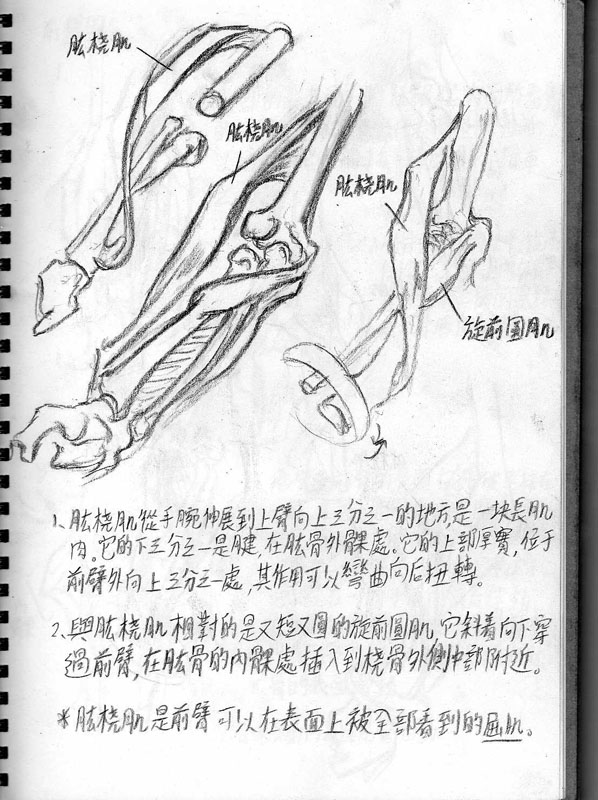 肱桡肌
肱桡肌
肱桡肌
旋前圓肌
1、肱桡肌從手腕伸展到上臂向上三分之一的地方是一块長肌
肉。它的下三分之一是腱,在肱骨外髁處。它的上部厚實,位于
前臂外向上三分之一處,其作用可以彎曲向后扭轉。
2、與肱桡肌相對的是又短又圓的旋前圓肌,它斜着向下穿
過前臂,在肱骨的内髁處插入到桡骨外側中部附近。
*肱桡肌是前臂可以在表面上被全部看到的屈肌。